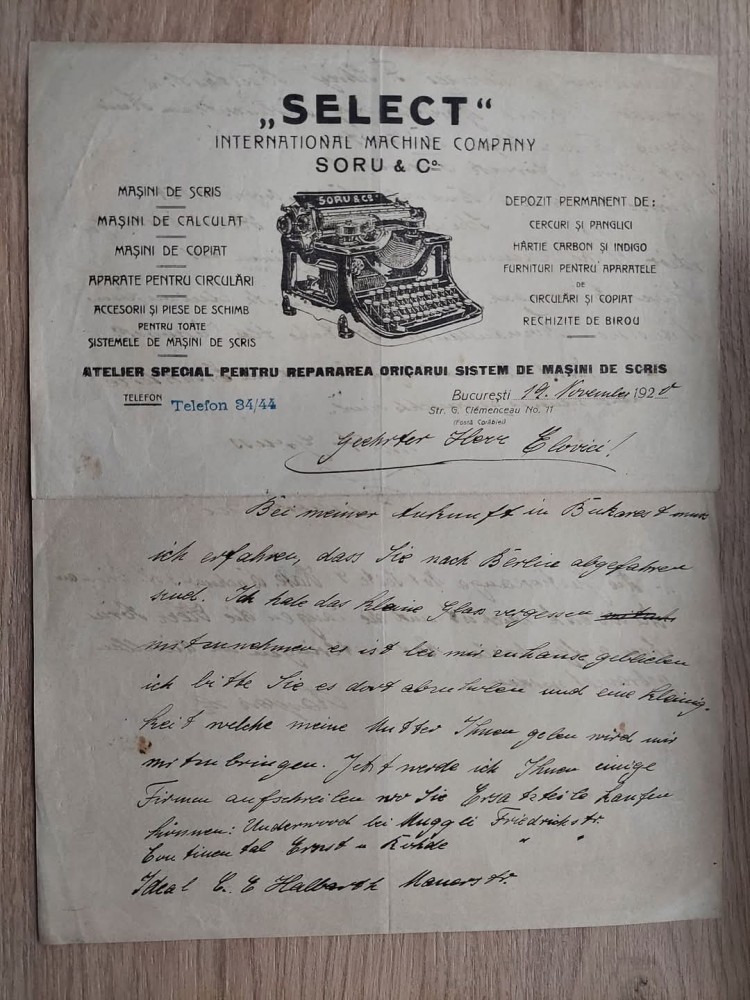 „SELECT“
INTERNATIONAL MACHINE COMPANY
SORU & Co.
MAȘINI DE SCRIS
MAȘINI DE CALCULAT
MAȘINI DE COPIAT
APARATE PENTRU CIRCULĂRI
ACCESORII ȘI PIESE DE SCHIMB
PENTRU TOATE
SISTEMELE DE MAȘINI DE SCRIS
SORU & Co.
DEPOZIT PERMANENT DE:
CERCURI ȘI PANGLICI
HÂRTIE CARBON ȘI INDIGO
FURNITURI PENTRU APARATELE
DE
CIRCULĂRI ȘI COPIAT
RECHIZITE DE BIROU
ATELIER SPECIAL PENTRU REPARAREA ORIÇARUI SISTEM DE MAȘINI DE SCRIS
TELEFON Telefon 34/44
București 19. November 1920
Str. G. Clémenceau No. 11
Geehrter Herr Elovici!
Bei meiner Ankunft in Bukarest muss
ich erfahren, dass Sie nach Berlin abgefahren
sind. Ich habe das kleine Glas vergessen
mitzunehmen es ist bei mir zuhause geblieben
ich bitte Sie es dort abzuholen und eine kleinig-
keit welche meine Mutter Ihnen geben wird mir
mitzubringen. Jetzt werde ich Ihnen einige
Firmen aufschreiben wo Sie Ersatzteile kaufen
können: Underwood bei Muggli Friedrichstr.
Continental Ernst u Rohde " "
Ideal C. E Halbarth Mauerstr.